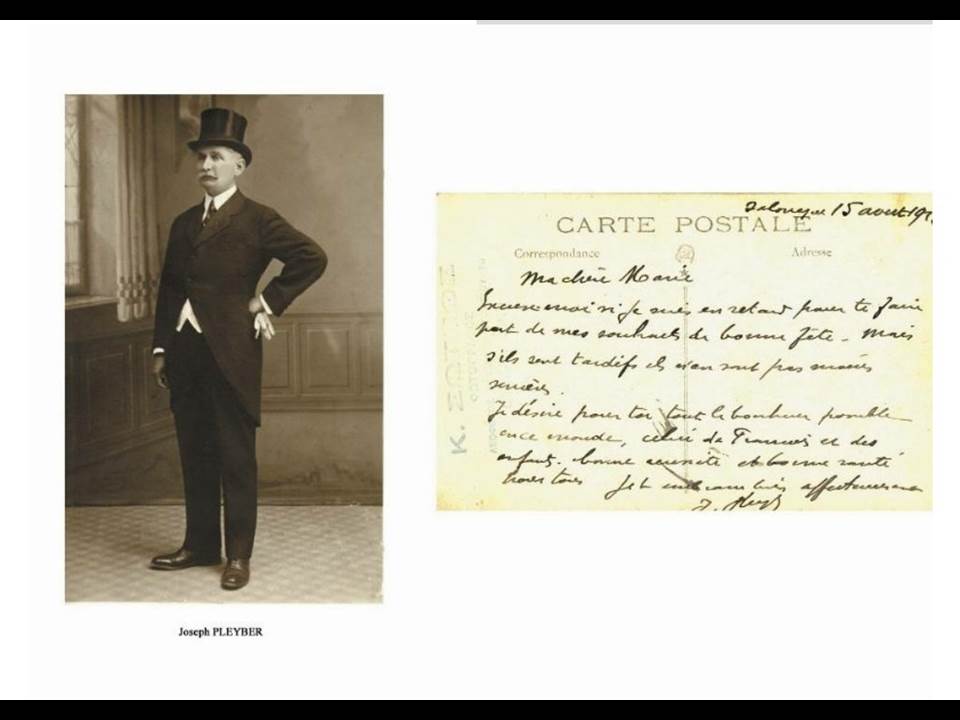 15 avril 191
CARTE POSTALE
Correspondance
Adresse
Ma chère Marie
Excuse moi si je suis en retard pour te faire
part de mes souhaits de bonne fête - mais
s'ils sont tardifs ils n'en sont pas moins
sincères.
Je désire pour toi tout le bonheur possible
en ce monde, celui de François et des
enfants. bonne et bonne santé
pour tous Je t'embrasse bien affectueusement
J. Pleyb
K.
Joseph PLEYBER